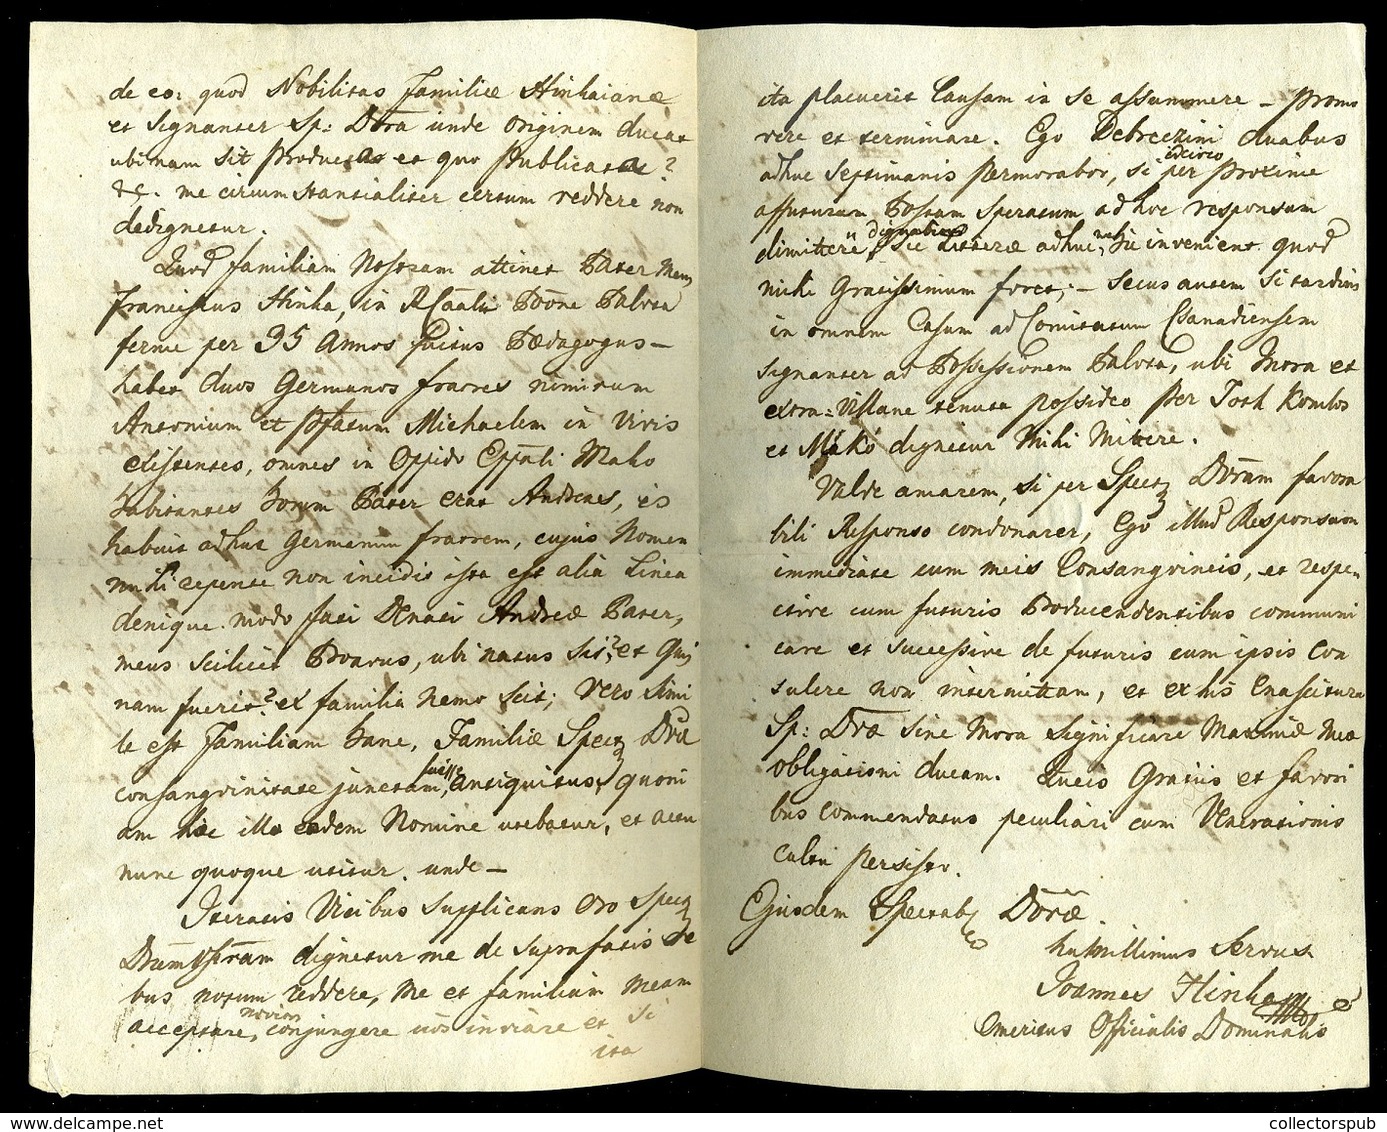 de eo: quod Nobilitas Familiæ Hinkaianæ
et signanter Sp: Dōra unde originem ducat
ubinam sit producta et quo publicata?
&c. me circumstantialiter certum reddere non
dedignetur.
Quod familiam Nostram attinet Pater Meus
Franciscus Hinka, in Palota
ferme per 35 annos Pædagogus –
habet duos Germanos fratres nimirum
Antonium et Michaelem in Vivis
existentes, omnes in Oppido Mako
habitantes horum Pater erat Andreas, is
habuit adhuc Germanum fratrem, cujus Nomen
mihi repente non incidit ista est alia Linea
denique modo fati Andreæ Pater,
meus scilicet Proavus, ubi natus sit? et qui
nam fuerit? ex familia nemo scit; Vero simi
le est Familiam hanc, Familiæ Spect Dōa
consangvinitate junctam fuisse antiquitus, quoni
am hæc illa eodem Nomine utebatur, et actu
nunc quoque utitur. unde –
Iteratis Vicibus Supplicans Oro Spect
dignetur me de suprafatis
bus notum reddere, me et familiam meam
acceptare, conjungere et si
ita
ita placuerit Causam in se assummere – promo
vere et terminare. Ego Debreczini duabus
idcirco
adhuc Septimanis permorabor, si per proxime
affuturam Postam Speratum adhoc responsum
dimittere dignabitur, Literæ adhuc hic invenient quod
mihi Gratissimum foret; – Secus autem si tardius
in omnem Casum ad Comitatum Csanadiensem
signanter ad Possessionem Palota, ubi Mora et
extra=Villane tenuta possideo per Toth Komlos
et Makó dignetur Mihi Mittere.
Valde amarem, si per Spect Dōram favora
bili Responso condonarer, Ego illud Responsum
immediate cum meis Consangvineis, et respe-
ctive cum futuris Producendentibus communi
care et successive de futuris cum ipsis Con
sulere non intermittam, et ex his Enascitura
Sp: Dōræ sine Mora significare Maximæ Meæ
obligationi ducam. Gratiis et favori
bus commendatus peculiari cum Venerationis
cultu persisto.
Ejusdem Spectab Dōræ.
humillimus Servus
Joannes Hinka
Emeritus Officialis Dominalis
collectorspub